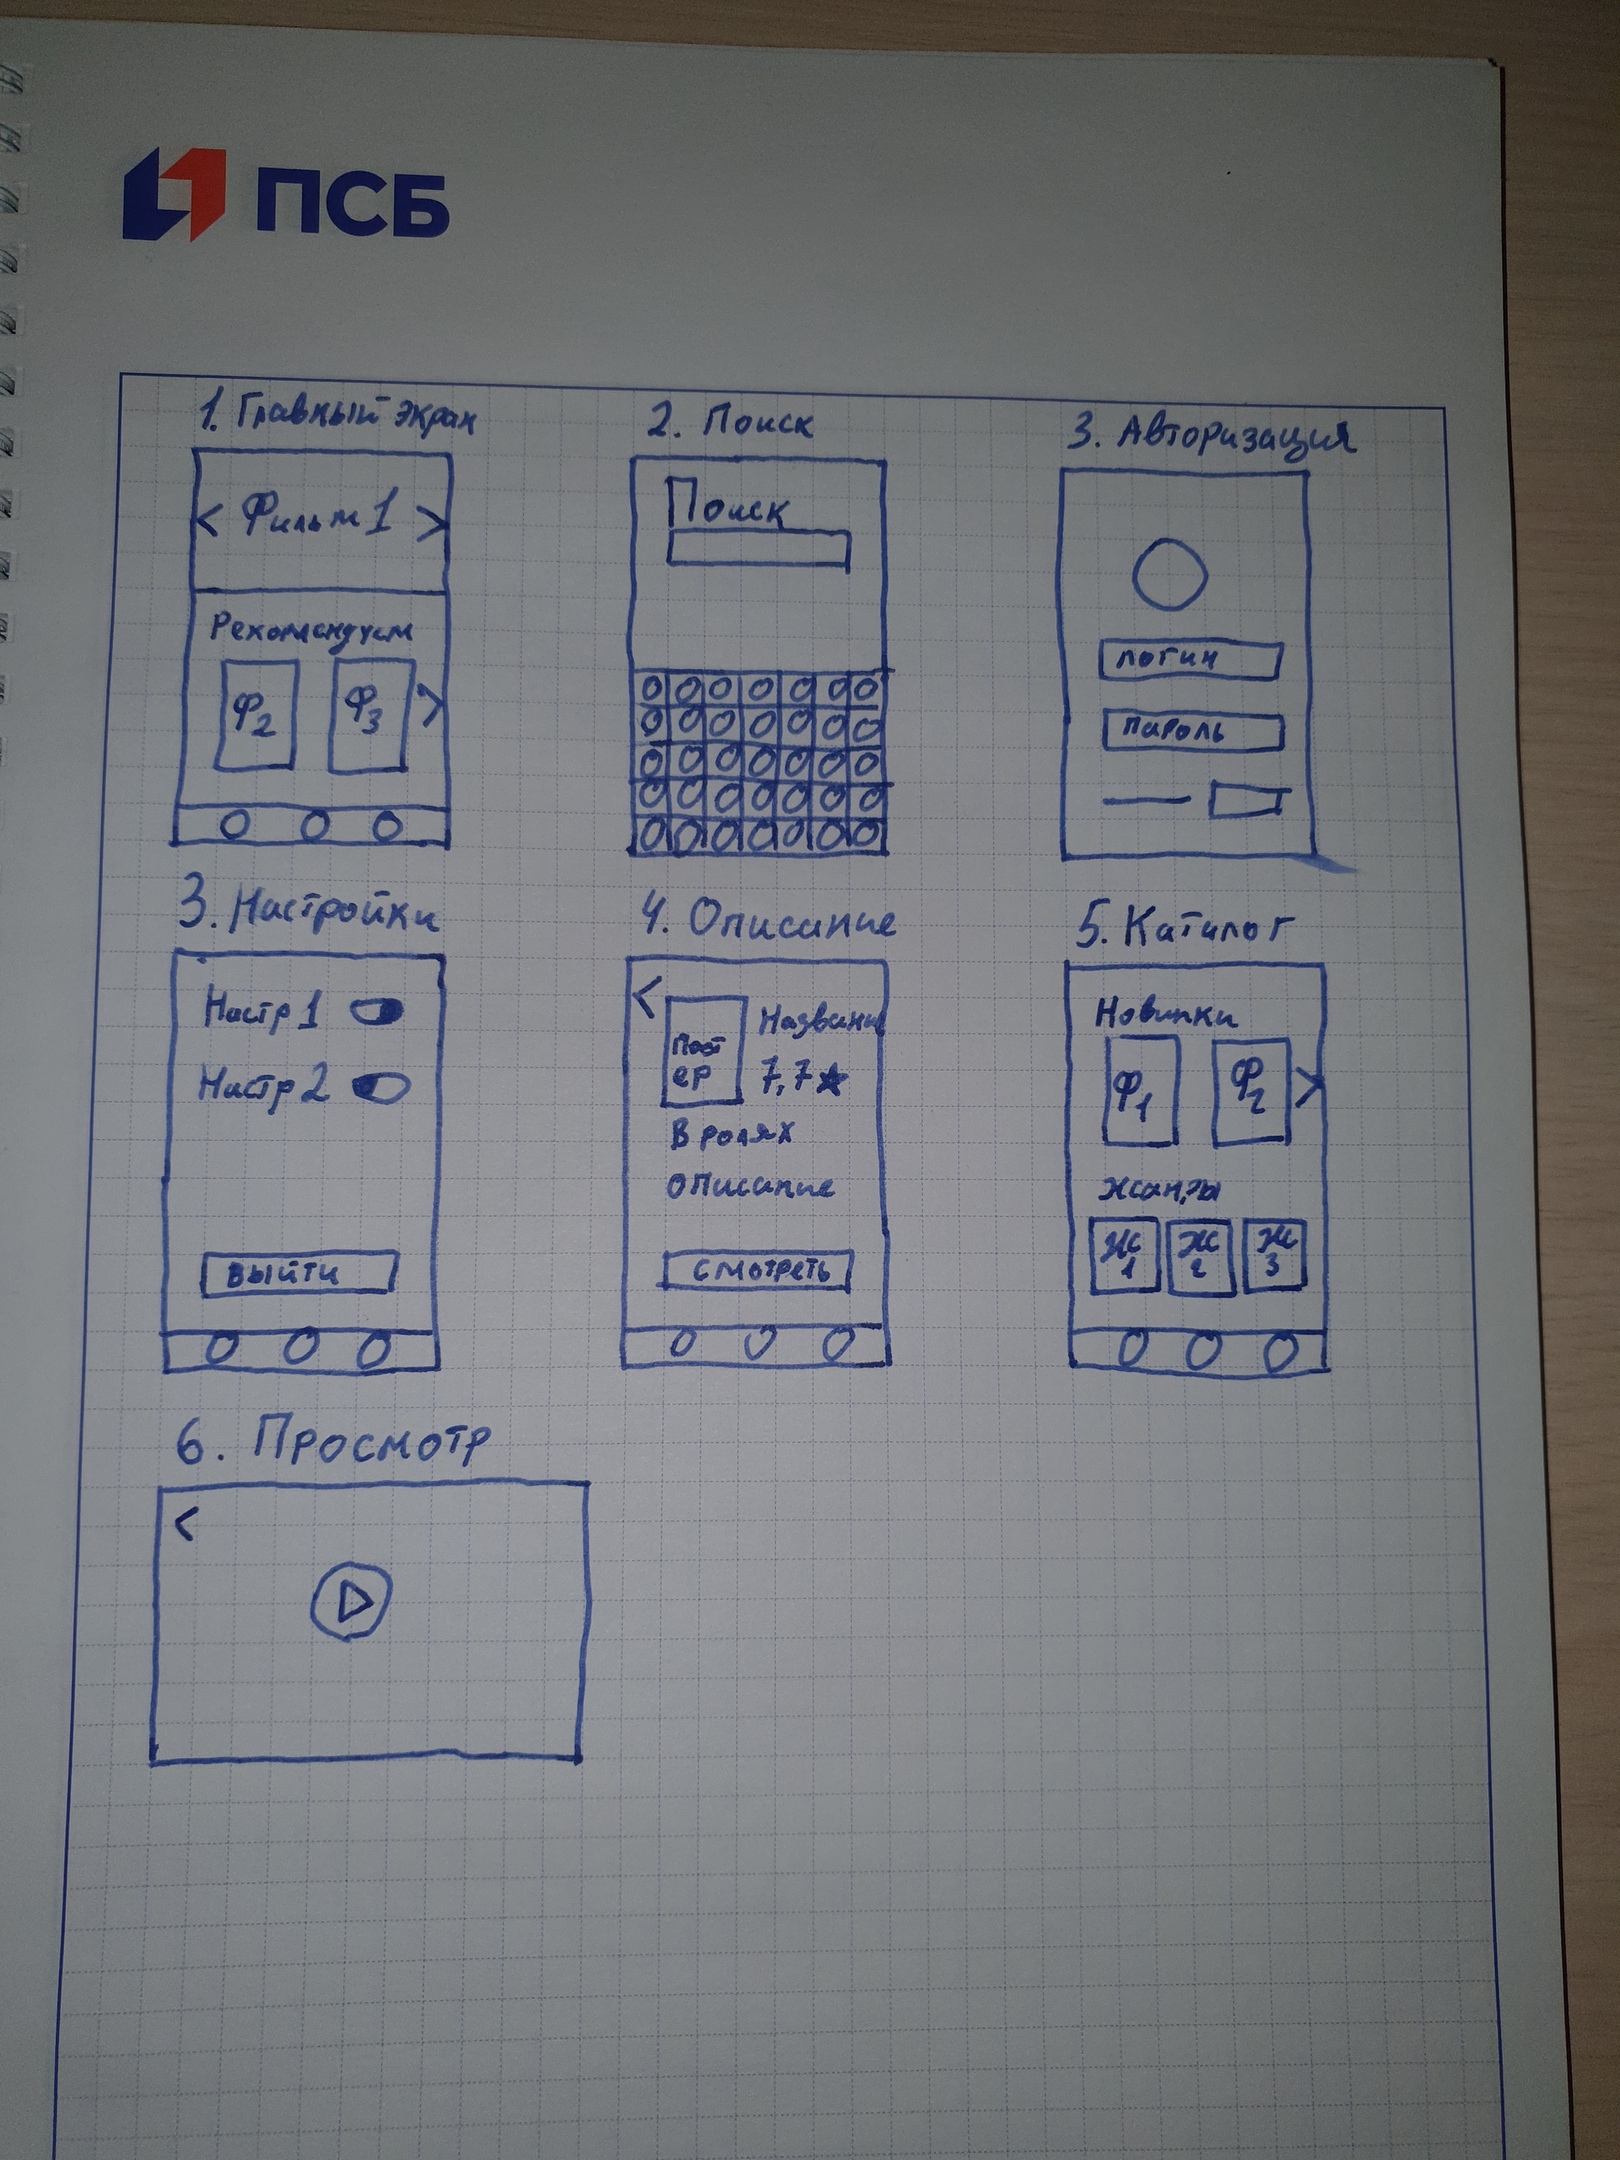 ПСБ
1. Главный экран
< Фильм 1 >
Рекомендуем
Ф2
Ф3
>
2. Поиск
Поиск
3. Авторизация
логин
пароль
3. Настройки
Настр 1
Настр 2
выйти
4. Описание
<
Пост
ер
Названи
7,7★
В ролях
описание
смотреть
5. Каталог
Новинки
Ф1
Ф2
>
жанры
Ж
1
Ж
2
Ж
3
6. Просмотр
<